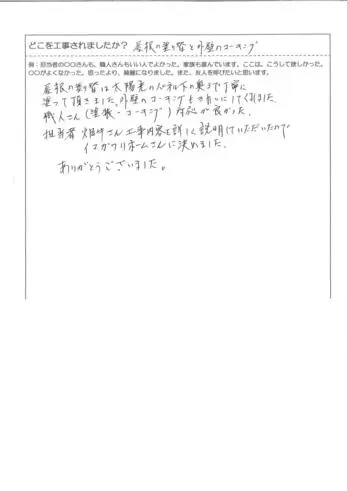 どこを工事されましたか? 屋根の葺き替と外壁のコーキング
例:担当者の〇〇さんも、職人さんもいい人でよかった。家族も喜んでいます。ここは、こうして欲しかった。
〇〇がよくなかった。思ったより、綺麗になりました。また、友人を呼びたいと思います。
屋根の葺き替は太陽光のパネル下の奥まで丁寧に
塗って頂きました。外壁のコーキングもきれいにして頂けました。
職人さん(塗装・コーキング)対応が良かった。
担当者 畑中さん工事内容を詳しく説明していただいたので
イマガワリホームさんに決めました。
ありがとうございました。